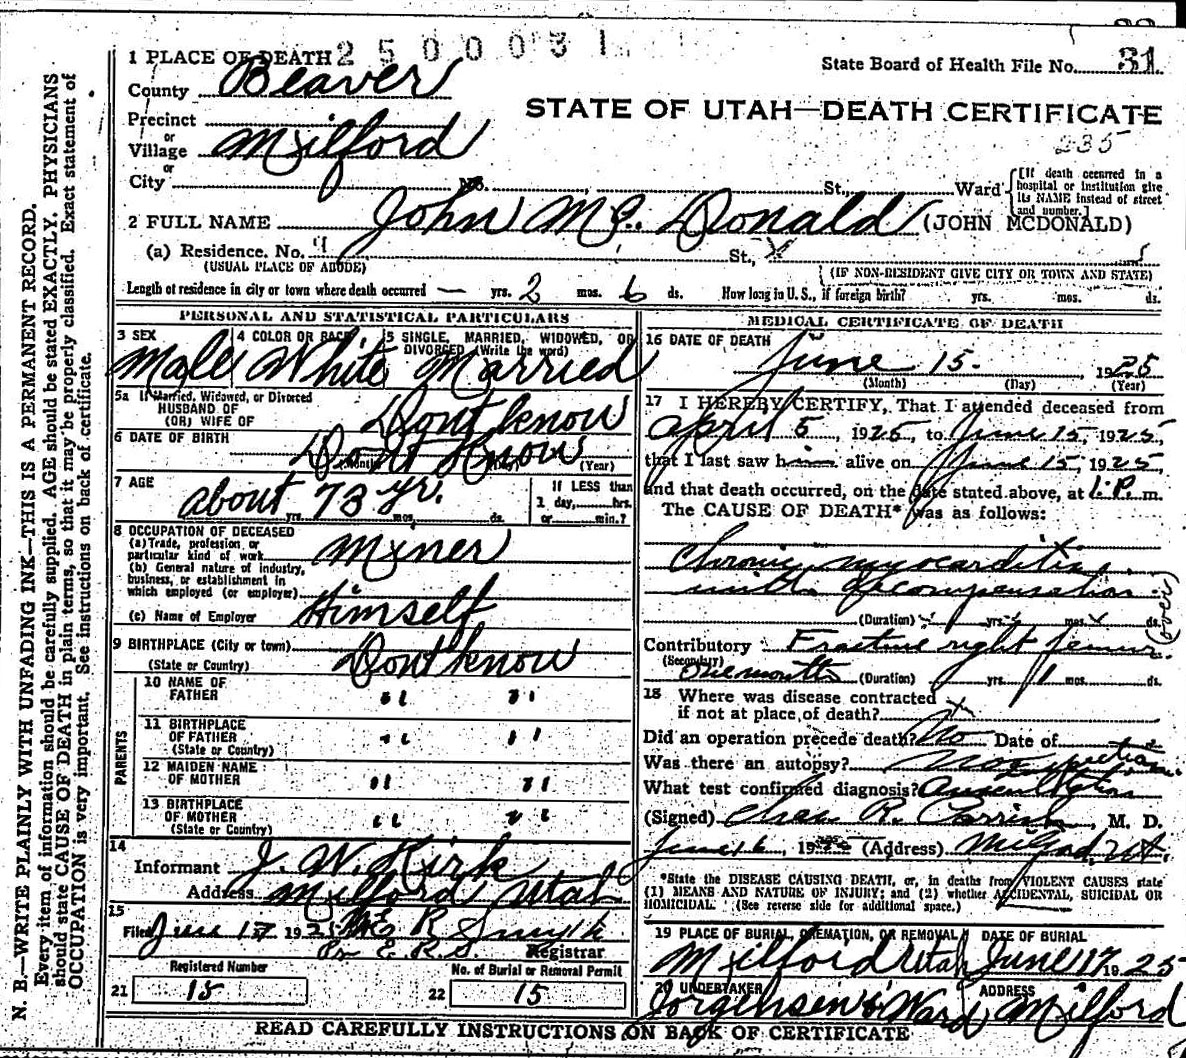 2500031
1 PLACE OF DEATH
State Board of Health File No. 31
County Beaver
STATE OF UTAH—DEATH CERTIFICATE
Precinct
or
Village Milford
235
or
City No. St., Ward
[If death occurred in a hospital or institution give its NAME instead of street and number.]
2 FULL NAME John Mc. Donald (JOHN MCDONALD)
(a) Residence. No. St.,
(USUAL PLACE OF ABODE) (IF NON-RESIDENT GIVE CITY OR TOWN AND STATE)
Length of residence in city or town where death occurred — yrs. 2 mos. 6 ds. How long in U. S., if foreign birth? yrs. mos. ds.
PERSONAL AND STATISTICAL PARTICULARS
3 SEX 4 COLOR OR RACE 5 SINGLE, MARRIED, WIDOWED, OR
DIVORCED (Write the word)
Male White Married
5a If Married, Widowed, or Divorced
HUSBAND OF
(OR) WIFE OF Dont know
6 DATE OF BIRTH Dont Know
(Month) (Day) (Year)
7 AGE about 73 yr.
yrs. mos. ds.
If LESS than
1 day, hrs.
or min.?
8 OCCUPATION OF DECEASED
(a) Trade, profession, or
particular kind of work Miner
(b) General nature of industry,
business, or establishment in
which employed (or employer) Himself
(c) Name of Employer
9 BIRTHPLACE (City or town)
(State or Country) Dont know
PARENTS
10 NAME OF
FATHER " "
11 BIRTHPLACE
OF FATHER " "
(State or Country)
12 MAIDEN NAME
OF MOTHER " "
13 BIRTHPLACE
OF MOTHER " "
(State or Country)
14
Informant J. W. Kirk
Address Milford Utah
15
Filed June 17 1925 E R Smyth
Registrar
Registered Number No. of Burial or Removal Permit
21 15 22 15
MEDICAL CERTIFICATE OF DEATH
16 DATE OF DEATH
June 15. 1925
(Month) (Day) (Year)
17 I HEREBY CERTIFY, That I attended deceased from
April 5, 1925, to June 15, 1925,
that I last saw him alive on June 15, 1925,
and that death occurred, on the date stated above, at 1.P.m.
The CAUSE OF DEATH* was as follows:
Chronic myocarditis
with decompensation
(Duration) yrs. mos. ds.
(over)
Contributory Fracture right femur.
(Secondary)
one month (Duration) yrs. 1 mos. ds.
18 Where was disease contracted
if not at place of death? x
Did an operation precede death? No Date of
Was there an autopsy? No
What test confirmed diagnosis? Auscultation
(Signed) Chas R. Parrish, M. D.
June 16, 1925 (Address) Milford, Ut.
*State the DISEASE CAUSING DEATH, or, in deaths from VIOLENT CAUSES state
(1) MEANS AND NATURE OF INJURY; and (2) whether ACCIDENTAL, SUICIDAL OR
HOMICIDAL. (See reverse side for additional space.)
19 PLACE OF BURIAL, CREMATION, OR REMOVAL DATE OF BURIAL
Milford Utah June 17, 1925
20 UNDERTAKER ADDRESS
Jorgensen & Ward Milford
READ CAREFULLY INSTRUCTIONS ON BACK OF CERTIFICATE
N. B.—WRITE PLAINLY WITH UNFADING INK—THIS IS A PERMANENT RECORD.
Every item of information should be carefully supplied. AGE should be stated EXACTLY. PHYSICIANS
should state CAUSE OF DEATH in plain terms, so that it may be properly classified. Exact statement of
OCCUPATION is very important. See instructions on back of certificate.